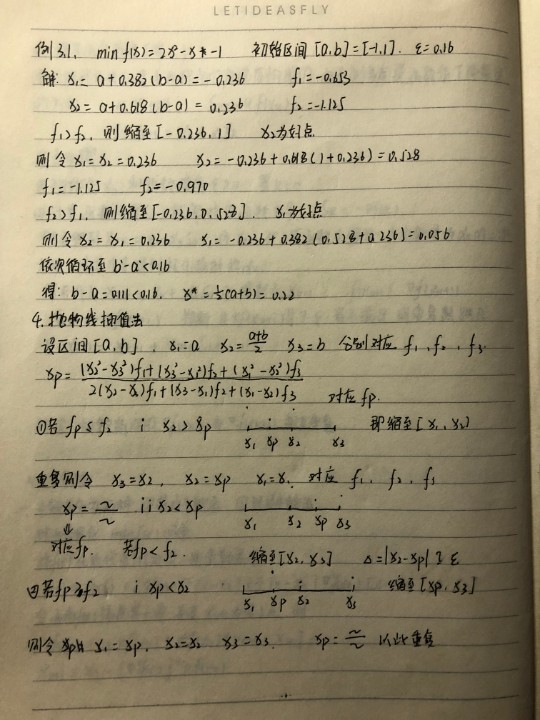 LETIDEASFLY
例3.1. min f(x)=2x²-x-1 初始区间[a,b]=[-1,1]. ε=0.16
解: x₁=a+0.382(b-a)=-0.236 f₁=-0.653
x₂=a+0.618(b-a)=0.236 f₂=-1.125
f₁>f₂, 则缩至[-0.236,1] x₂为好点
则令x₁=x₂=0.236 x₂=-0.236+0.618(1+0.236)=0.528
f₁=-1.125 f₂=-0.970
f₂>f₁, 则缩至[-0.236,0.528]. x₁为好点
则令x₂=x₁=0.236 x₁=-0.236+0.382(0.528+0.236)=0.056
依次循环至b-a<0.16
得: b-a=0.111<0.16. x*=½(a+b)=0.22
4.抛物线插值法
设区间[a,b], x₁=a x₂=(a+b)/2 x₃=b 分别对应f₁,f₂,f₃
xp=((x₂²-x₃²)f₁+(x₃²-x₁²)f₂+(x₁²-x₂²)f₃)/(2(x₂-x₃)f₁+(x₃-x₁)f₂+(x₁-x₂)f₃) 对应fp.
①若fp≤f₂ i x₂>xp x₁ xp x₂ x₃ 即缩至[x₁,x₂]
重复则令 x₃=x₂, x₂=xp x₁=x₁ 对应 f₁ f₂ f₃
xp=~/~ ii x₂<xp x₁ x₂ xp x₃
对应fp. 若fp<f₂. 缩至[x₂,x₃] Δ=|x₂-xp| ε
若fp≥f₂ i xp<x₂ x₁ xp x₂ x₃ 缩至[xp,x₃]
则令 x₁=xp, x₂=x₂ x₃=x₃ xp=~/~ 以此重复